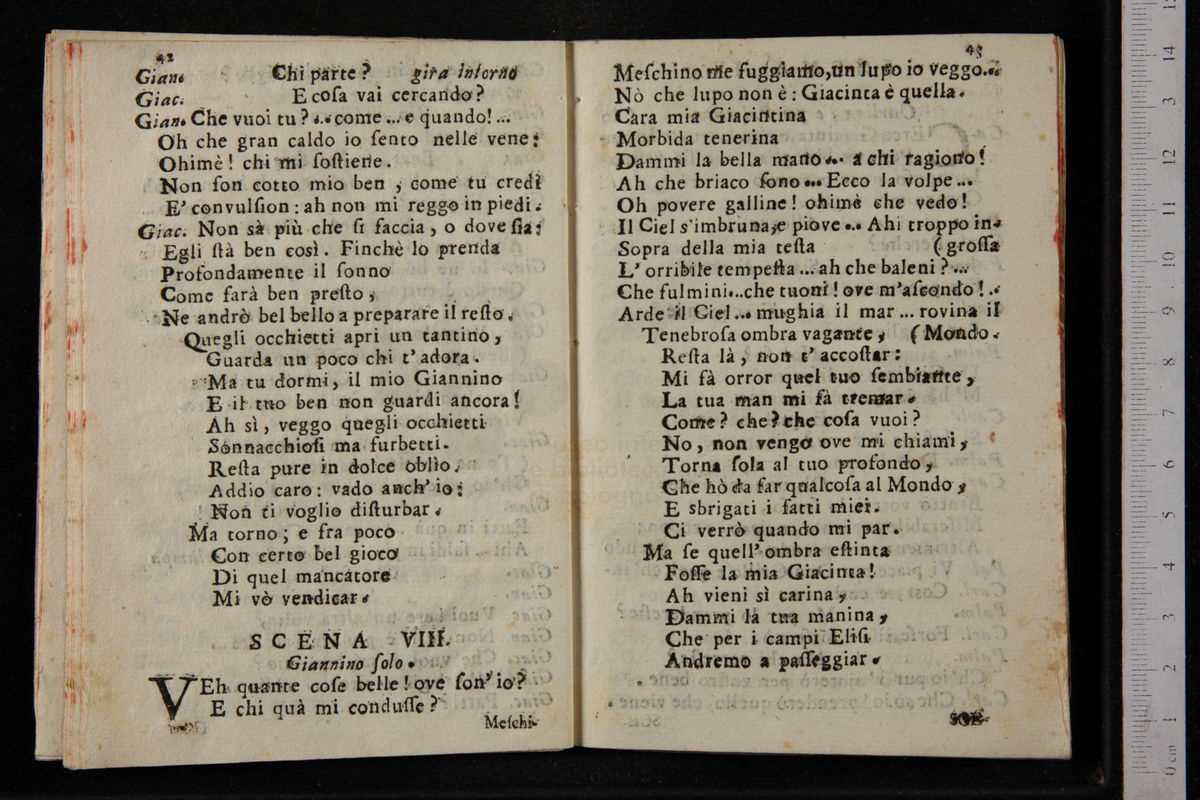 42
Gian. Chi parte? gira intorno
Giac. E cosa vai cercando?
Gian. Che vuoi tu? ... come ... e quando! ...
Oh che gran caldo io ſento nelle vene:
Ohimè! chi mi ſoſtiene.
Non ſon cotto mio ben, come tu credi
E' convulſion: ah non mi reggo in piedi.
Giac. Non sà più che ſi faccia, o dove ſia:
Egli ſtà ben così. Finchè lo prenda
Profondamente il ſonno
Come farà ben preſto,
Ne andrò bel bello a preparare il reſto.
Quegli occhietti apri un tantino,
Guarda un poco chi t'adora.
Ma tu dormi, il mio Giannino
E il tuo ben non guardi ancora!
Ah sì, veggo quegli occhietti
Sonnacchioſi ma furbetti.
Reſta pure in dolce oblìo.
Addio caro: vado anch'io:
Non ti voglio diſturbar.
Ma torno; e fra poco
Con certo bel gioco
Di quel mancatore
Mi vò vendicar.
SCENA VIII.
Giannino ſolo.
VEh quante coſe belle! ove ſon'io?
E chi quà mi conduſſe?
Meſchi-
43
Meſchino me fuggiamo, un lupo io veggo...
Nò che lupo non è: Giacinta è quella.
Cara mia Giacintina
Morbida tenerina
Dammi la bella mano... a chi ragiono!
Ah che briaco ſono... Ecco la volpe...
Oh povere galline! ohimè che vedo!
Il Ciel s'imbruna, e piove... Ahi troppo in-
Sopra della mia teſta (groſſa
L'orribile tempeſta ... ah che baleni? ...
Che fulmini... che tuoni! ove m'aſcondo! ..
Arde il Ciel... mughia il mar ... rovina il
Tenebroſa ombra vagante, (Mondo.
Reſta là, non t'accoſtar:
Mi fà orror quel tuo ſembiante,
La tua man mi fà tremar.
Come? che? che coſa vuoi?
No, non vengo ove mi chiami,
Torna ſola al tuo profondo,
Che hò da far qualcoſa al Mondo,
E sbrigati i fatti miei.
Ci verrò quando mi par.
Ma ſe quell'ombra eſtinta
Foſſe la mia Giacinta!
Ah vieni sì carina,
Dammi la tua manina,
Che per i campi Eliſi
Andremo a paſſeggiar.